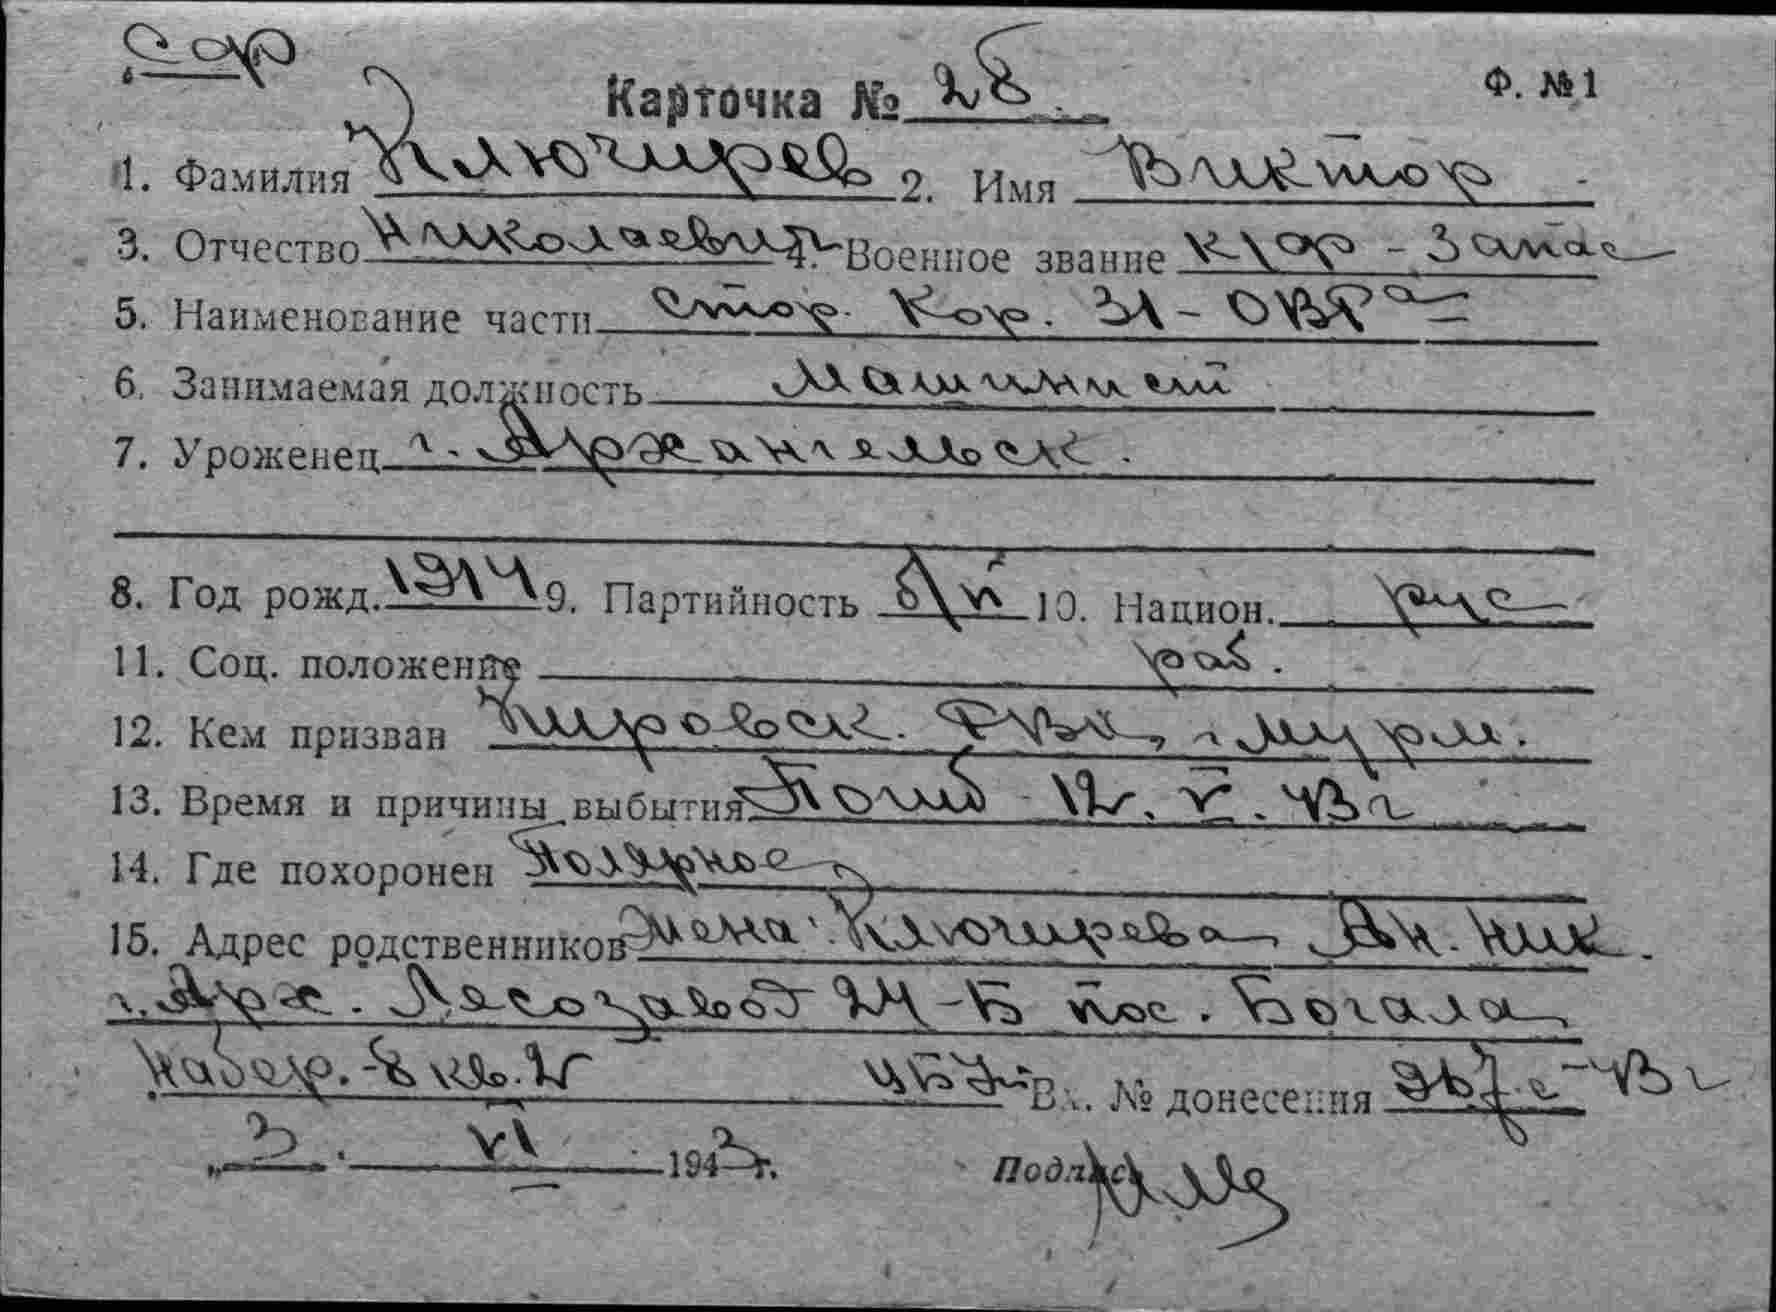 Карточка № 28 Ф. №1
1. Фамилия Ключирев 2. Имя Виктор
3. Отчество Николаевич 4. Военное звание к/ф - запас
5. Наименование части Стор. Кор. 31 - ОВРа
6. Занимаемая должность машинист
7. Уроженец г. Архангельск.
8. Год рожд. 1914 9. Партийность б/п 10. Национ. рус
11. Соц. положение раб.
12. Кем призван Кировск. РВК, г. Мурм.
13. Время и причины выбытия Погиб 12. V. 43 г
14. Где похоронен Полярное
15. Адрес родственников Жена Ключирева Ан. Ник.
г. Арх. Лесозавод 24-Б пос. Богала
набер. - 8 кв. 2 Вх. № донесения 967с - 43 г
„ 3. VI 1943 г. Подпись